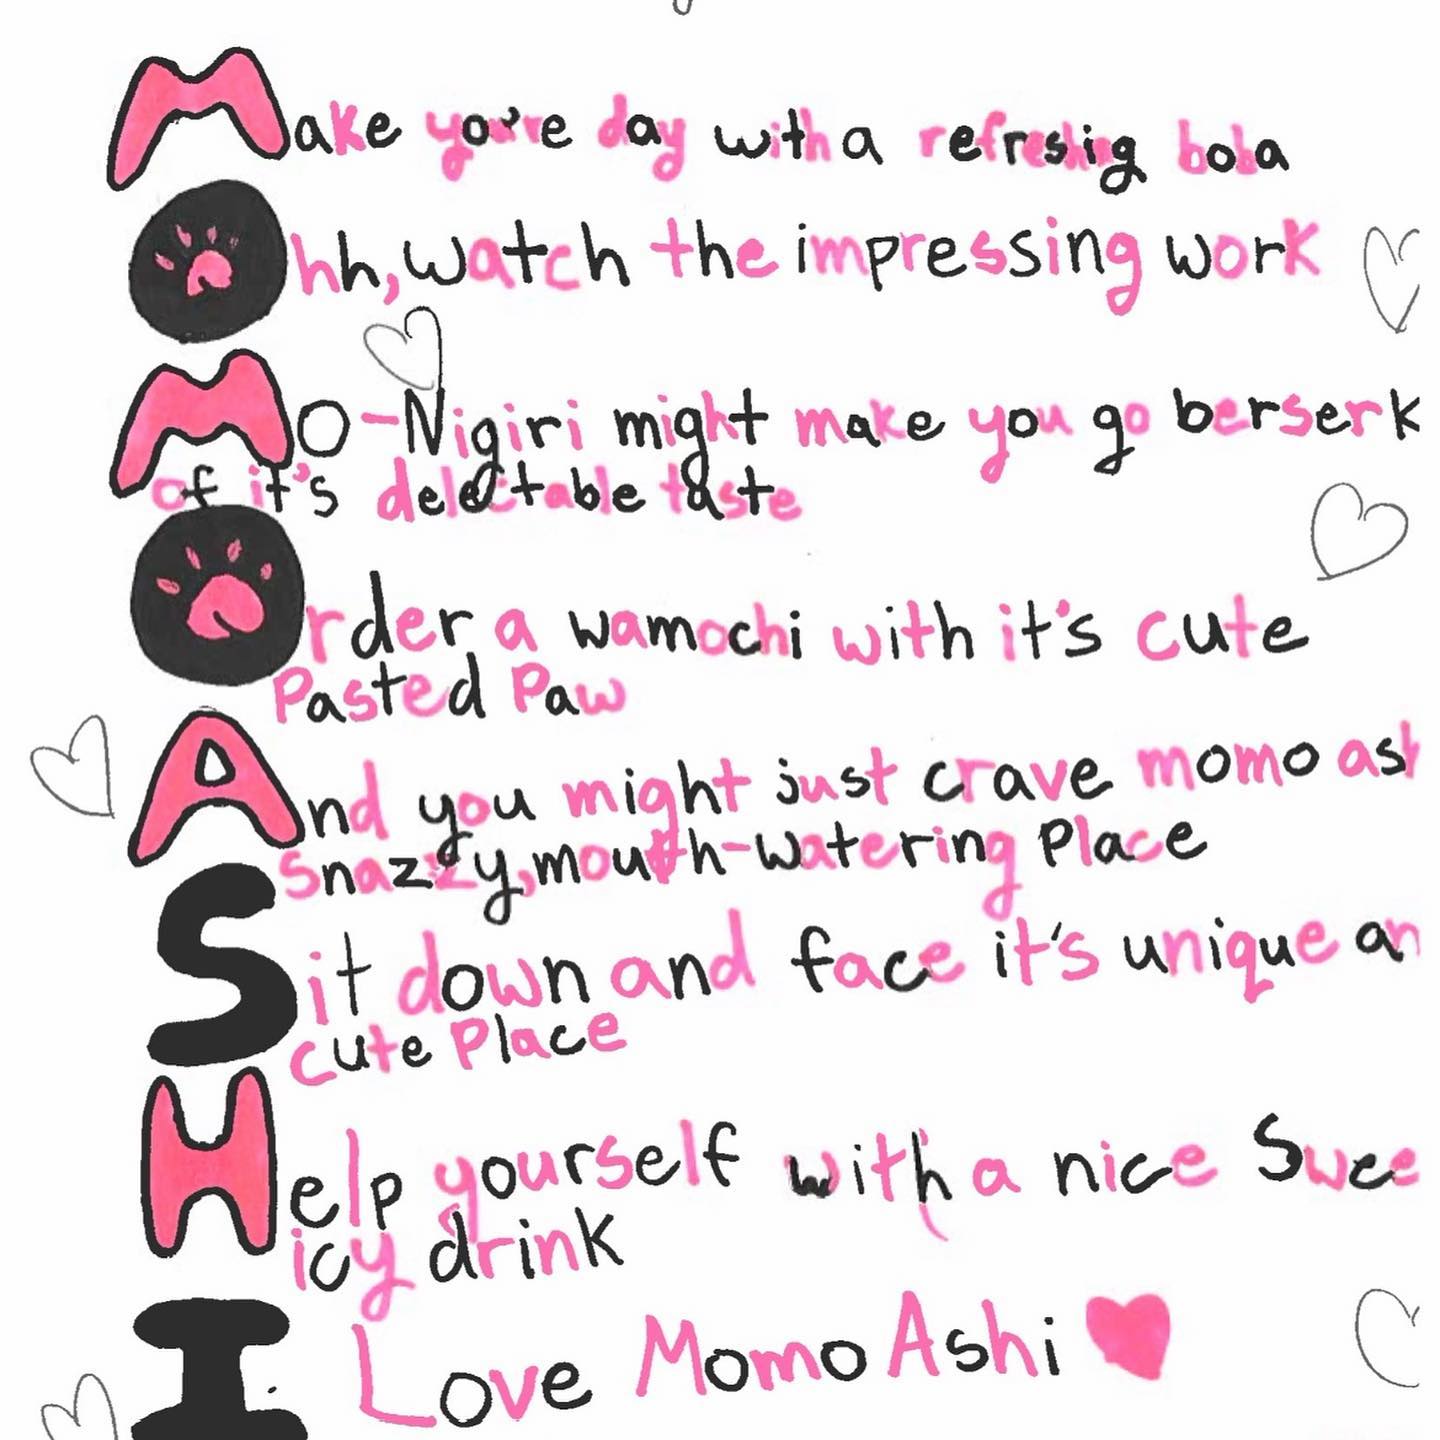 Make you're day with a refreshing boba
Ohh, watch the impressing work
Mo-Nigiri might make you go berserk
of it's delectable taste
Order a wamochi with it's cute
Pasted Paw
And you might just crave momo ash
Snazzy, mouth-watering Place
Sit down and face it's unique an
cute Place
Help yourself with a nice Swee
icy drink
I Love Momo Ashi